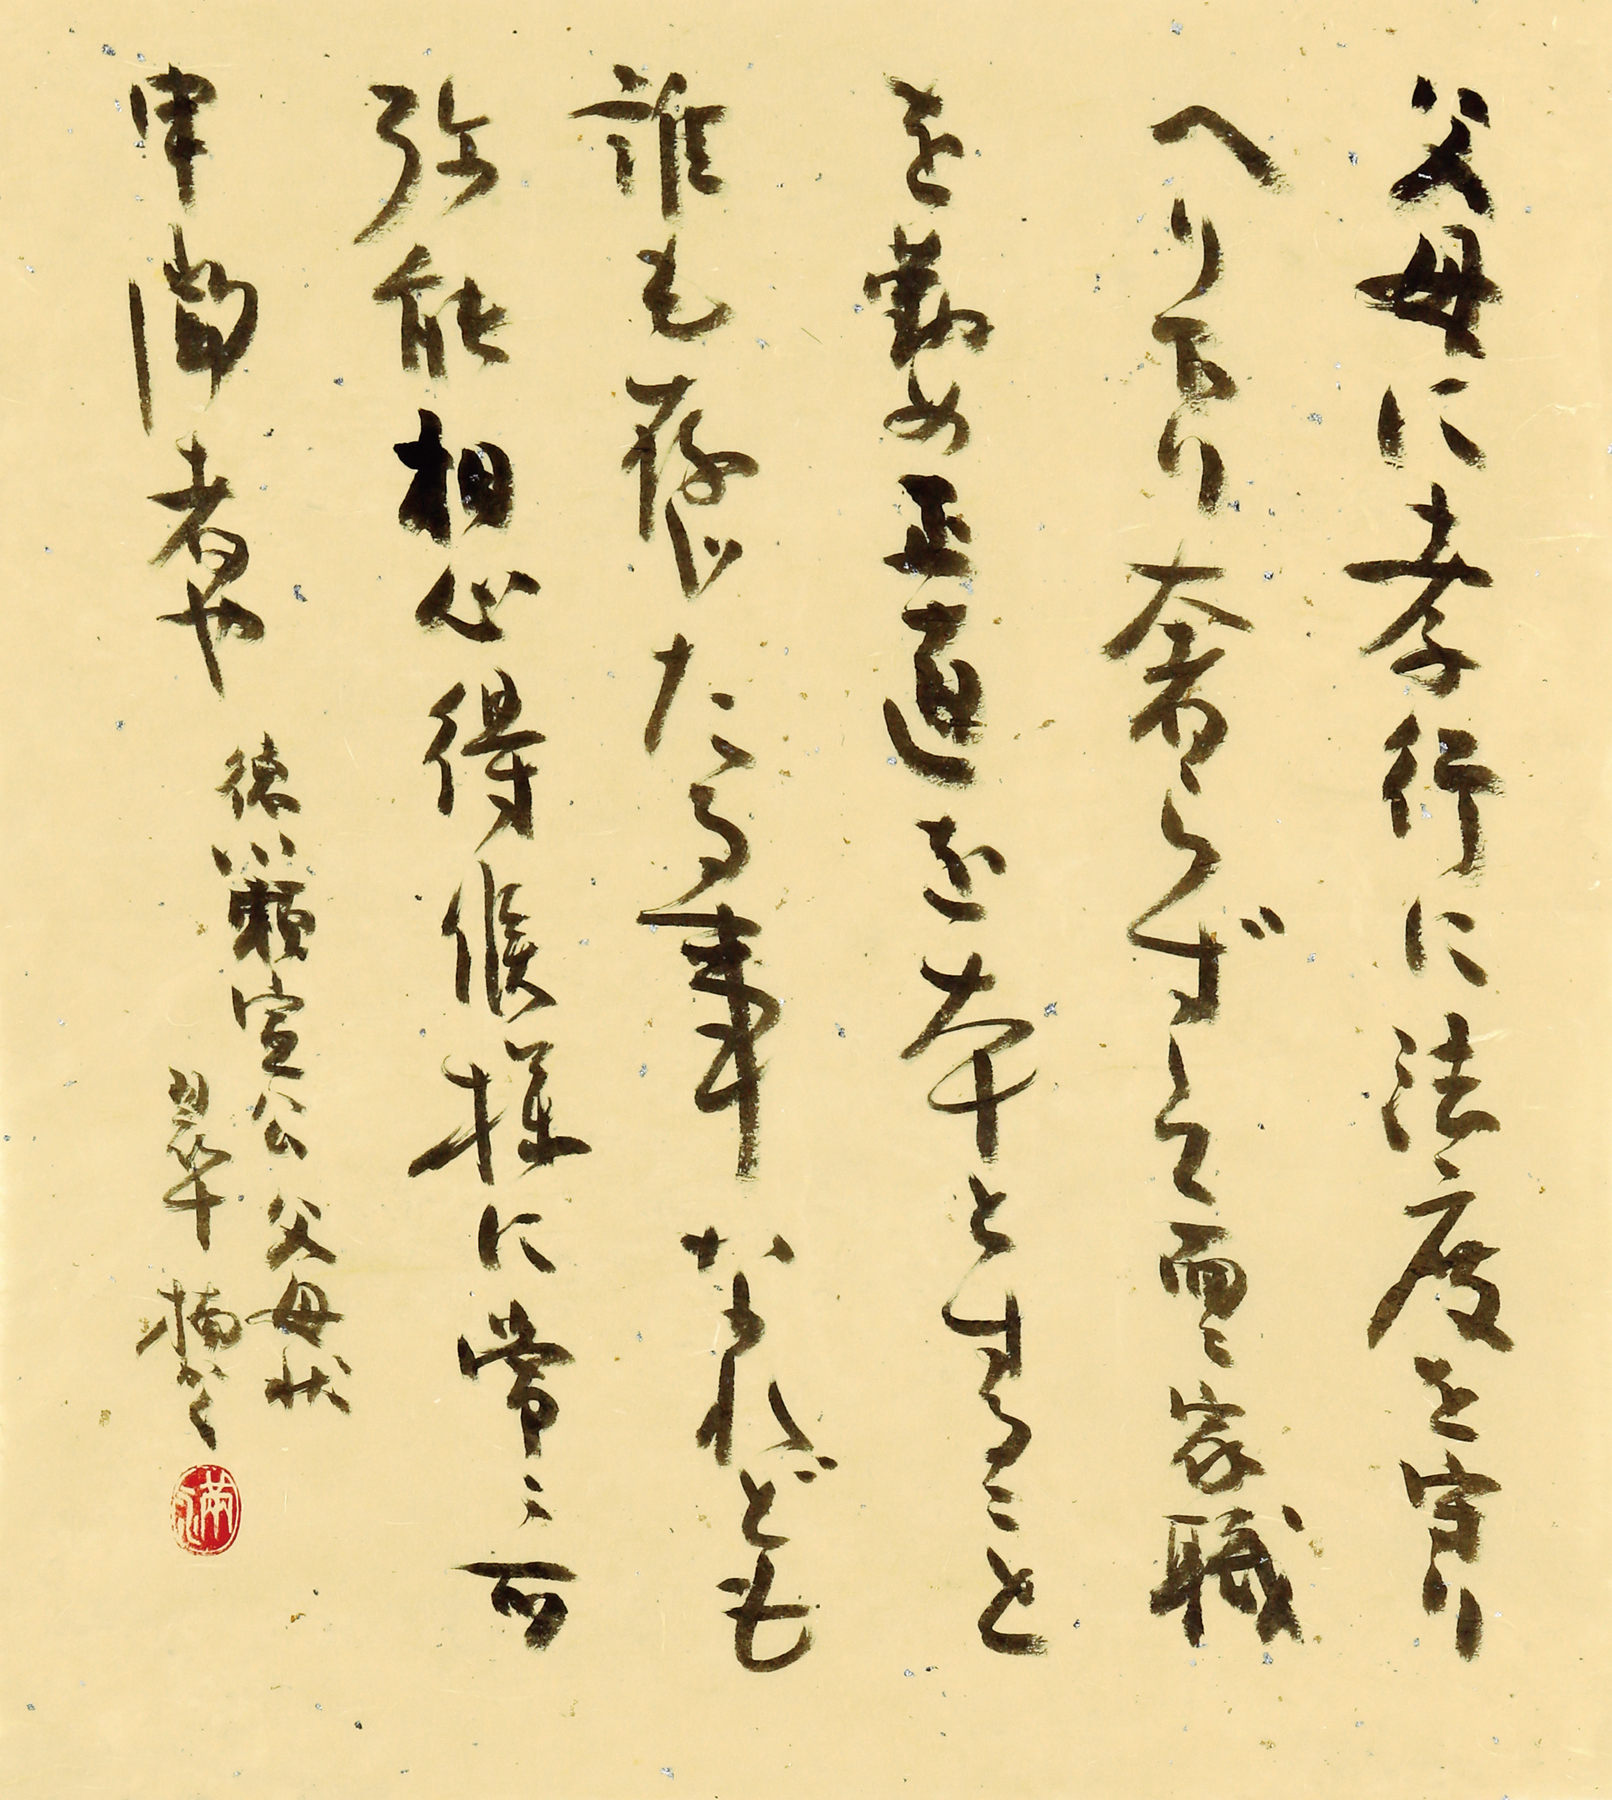 父母に孝行に法度を守り
へり下り奢らずして面々家職
を勤め正直を本とすること
誰も存じたる事なれども
弥能相心得候様に常々可
申聞者也
徳川頼宣公父母状
翠 楠かく